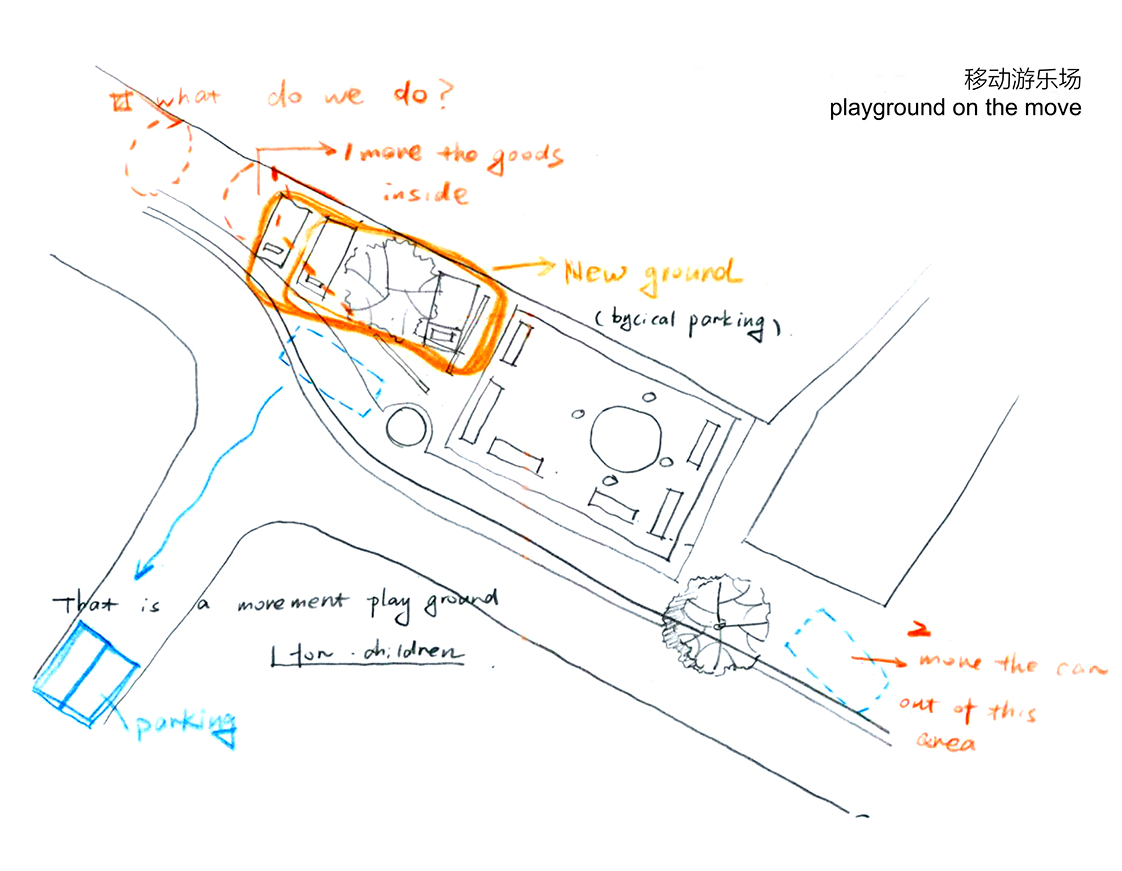 移动游乐场
playground on the move
what do we do?
1 move the goods
inside
New ground
(bycical parking).
That is a movement play ground
for children.
parking
2
move the car
out of this
area